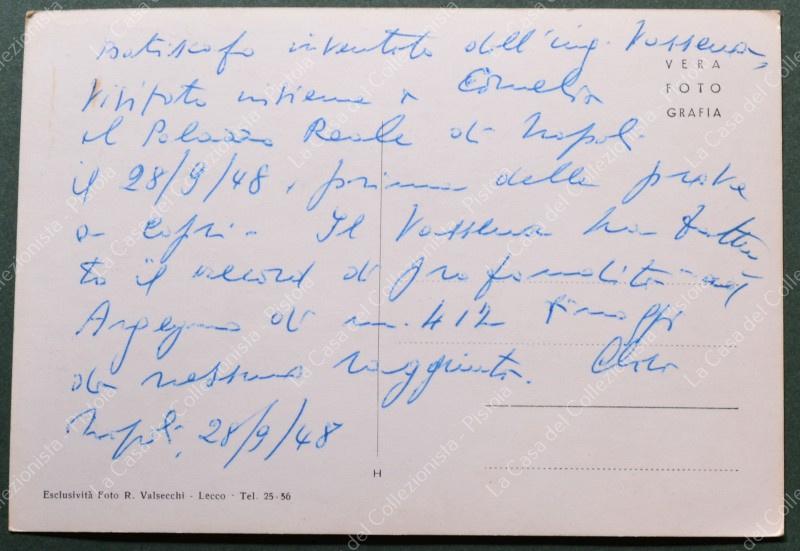 Batiskafo inventato dell'ing. Vassena,
VERA
FOTO
GRAFIA
Visitato insieme a Cornelia
al Palazzo Reale di Napoli
il 28/9/48, prima delle prove
a Capri - Il Vassena ha battu
to il record di profondità ad
Argegno di m. 412 finoggi
da nessuno raggiunto.
Napoli, 28/9/48
H
Esclusività Foto R. Valsecchi - Lecco - Tel. 25-56
La Casa del Collezionista - Pistoia